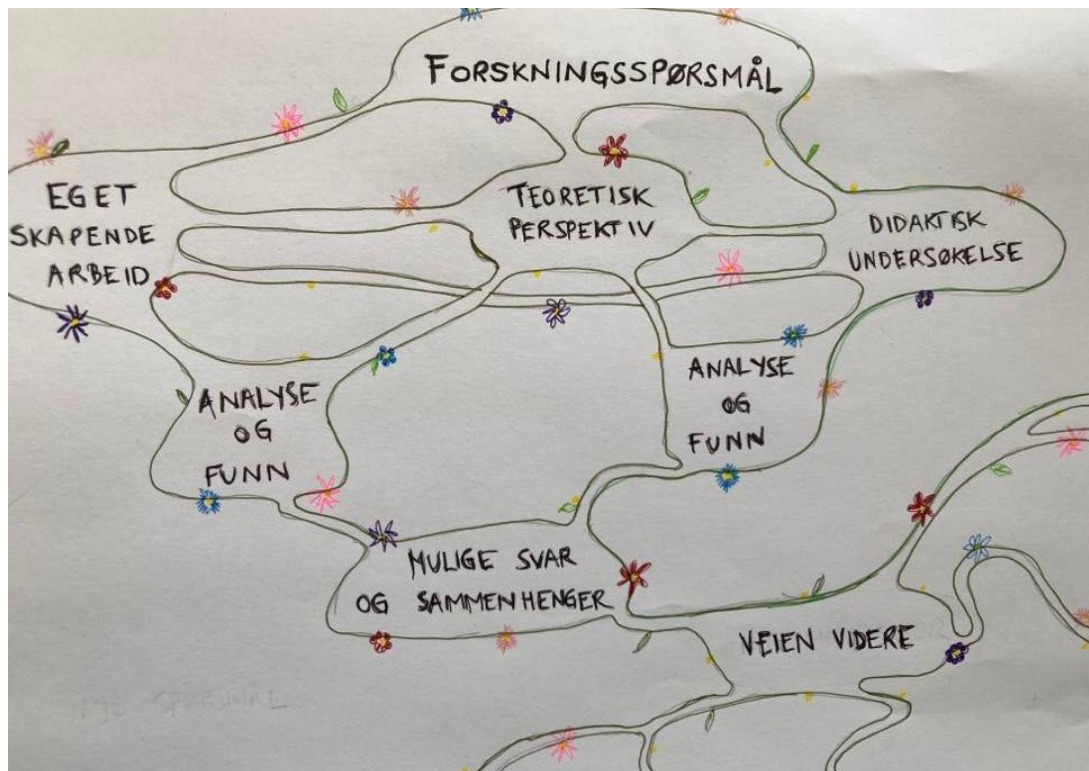 FORSKNINGSSPØRSMÅL
EGET
SKAPENDE
ARBEID
TEORETISK
PERSPEKTIV
DIDAKTISK
UNDERSØKELSE
ANALYSE
OG
FUNN
ANALYSE
OG
FUNN
MULIGE SVAR
OG SAMMENHENGER
VEIEN VIDERE
SPØRSMÅL